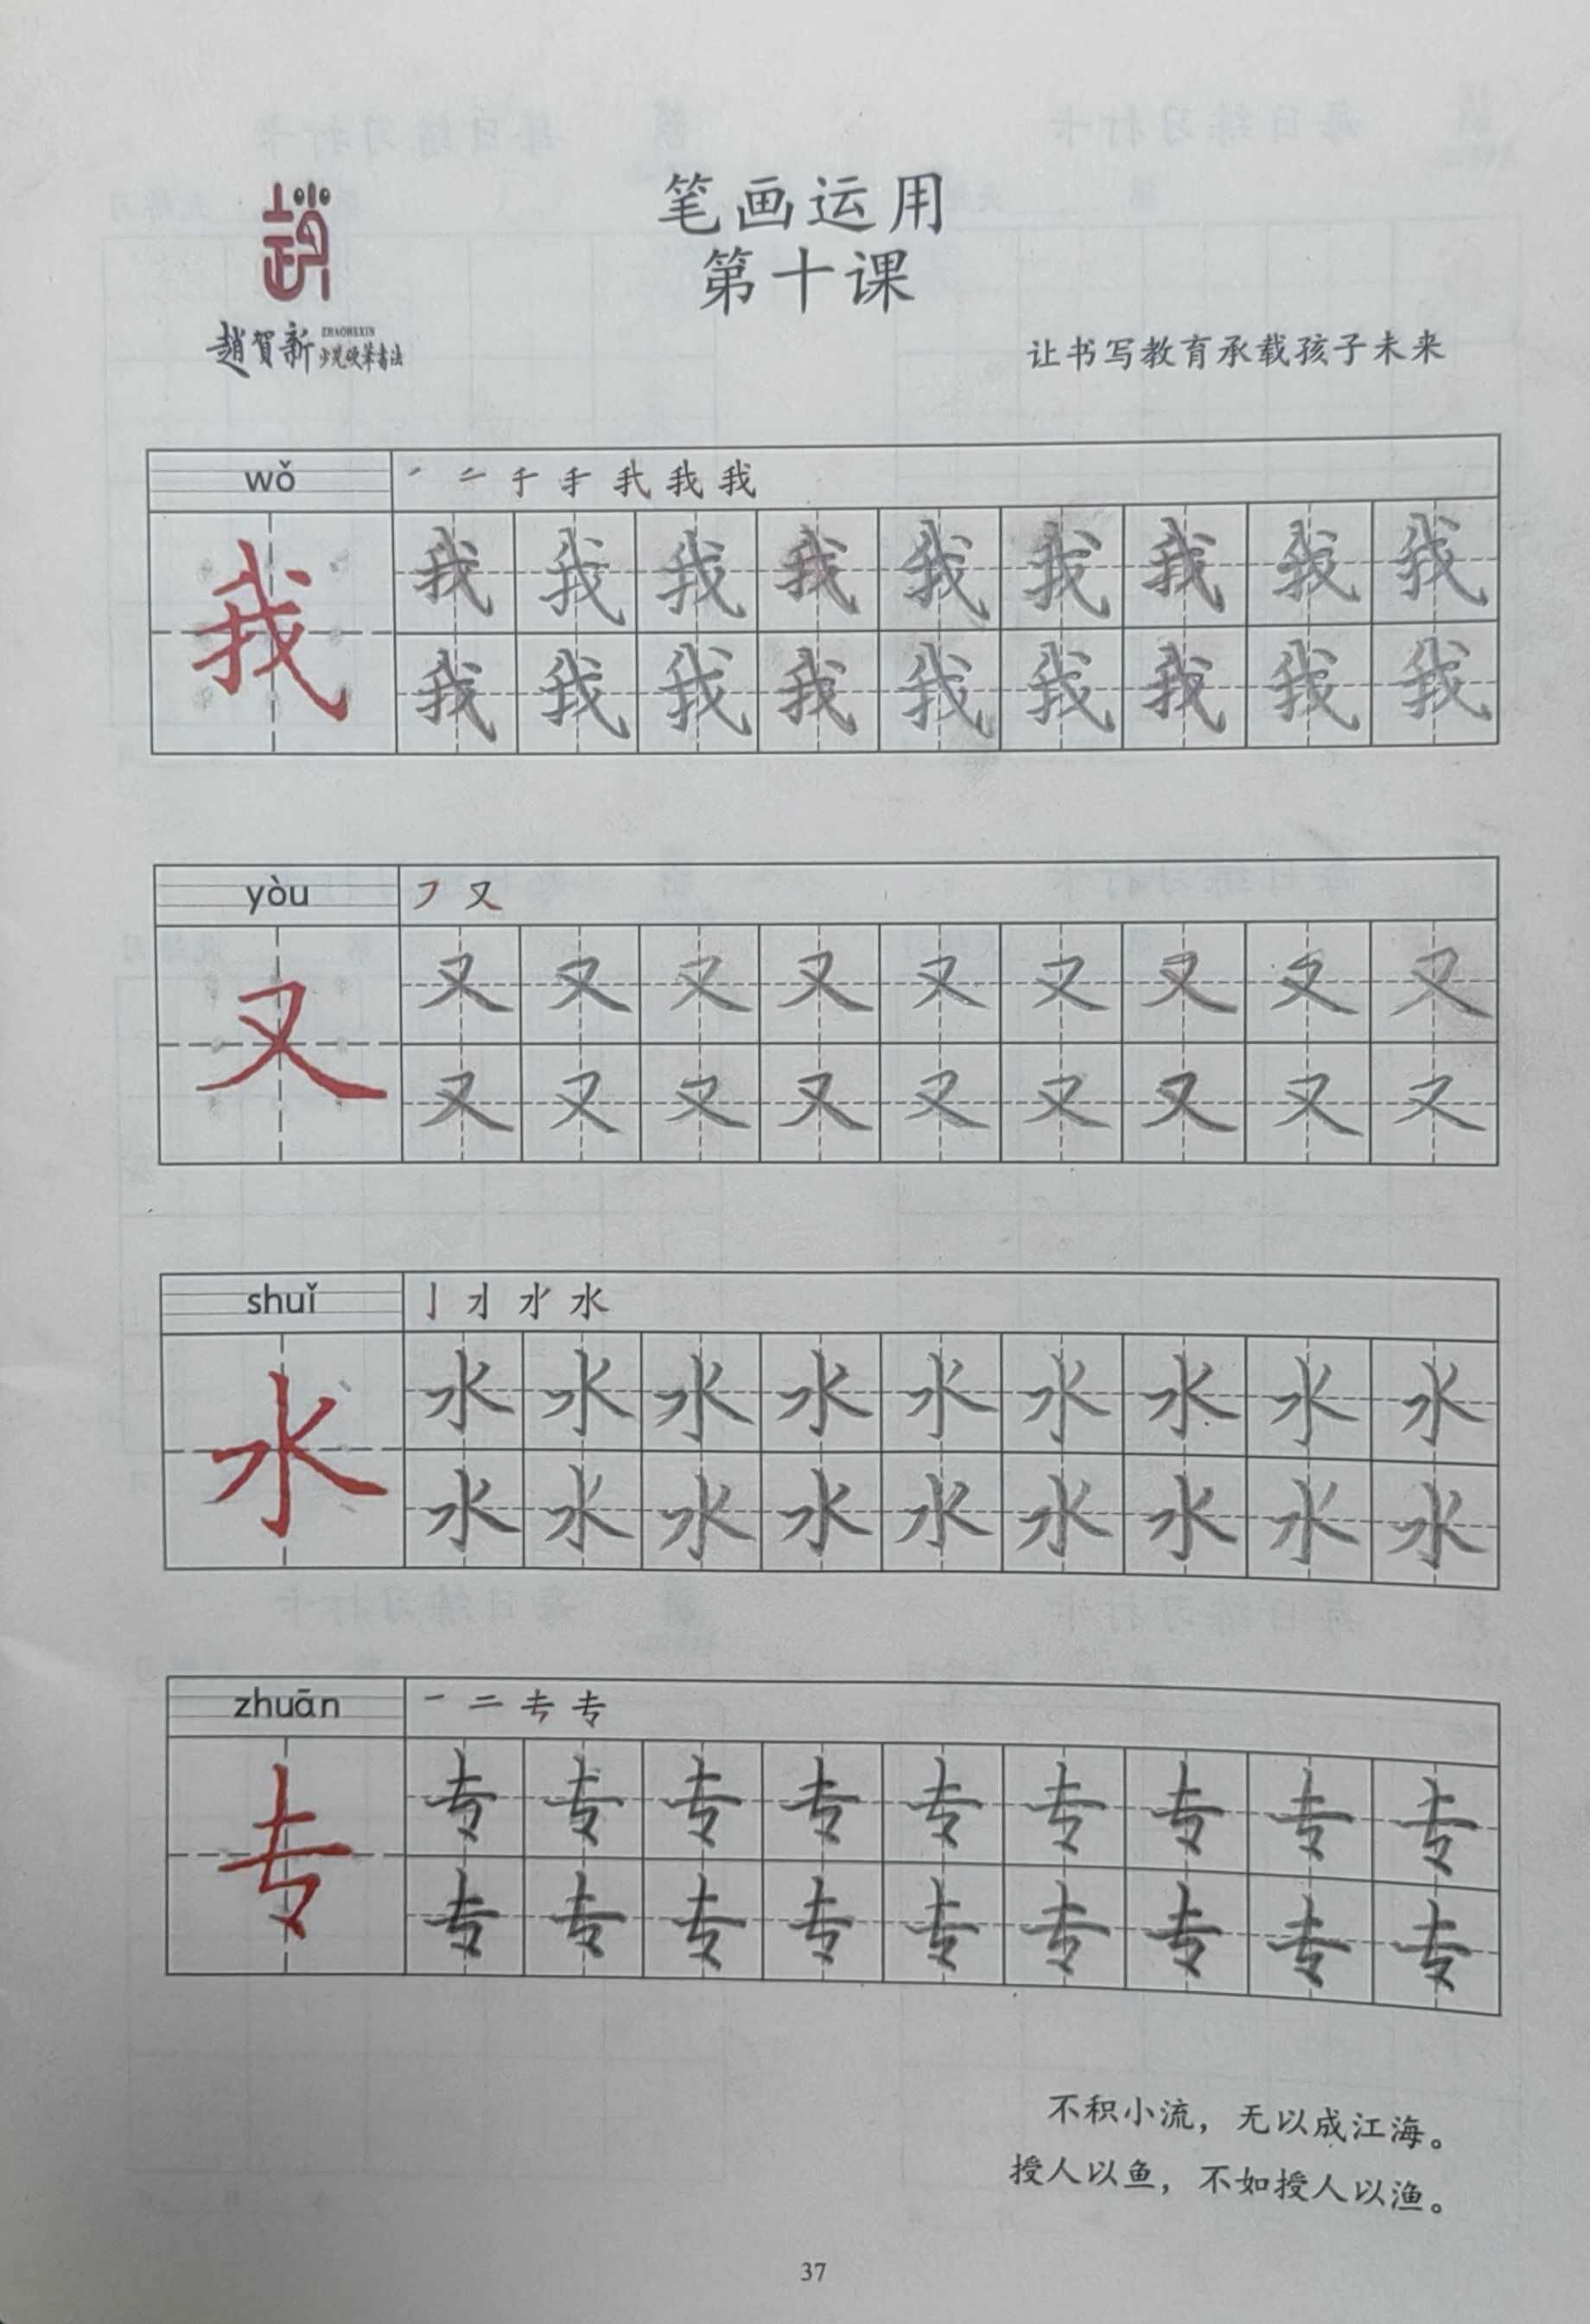 笔画运用
第十课
趙賀新 ZHAOHEXIN 少児硬筆書法
让书写教育承载孩子未来
wǒ
我
我 我 我 我 我 我 我 我 我
我 我 我 我 我 我 我 我 我
yòu
又
又
又 又 又 又 又 又 又 又 又
又 又 又 又 又 又 又 又 又
shuǐ
水
水
水 水 水 水 水 水 水 水 水
水 水 水 水 水 水 水 水 水
zhuān
专
专
专 专 专 专 专 专 专 专 专
专 专 专 专 专 专 专 专 专
不积小流，无以成江海。
授人以鱼，不如授人以渔。
37